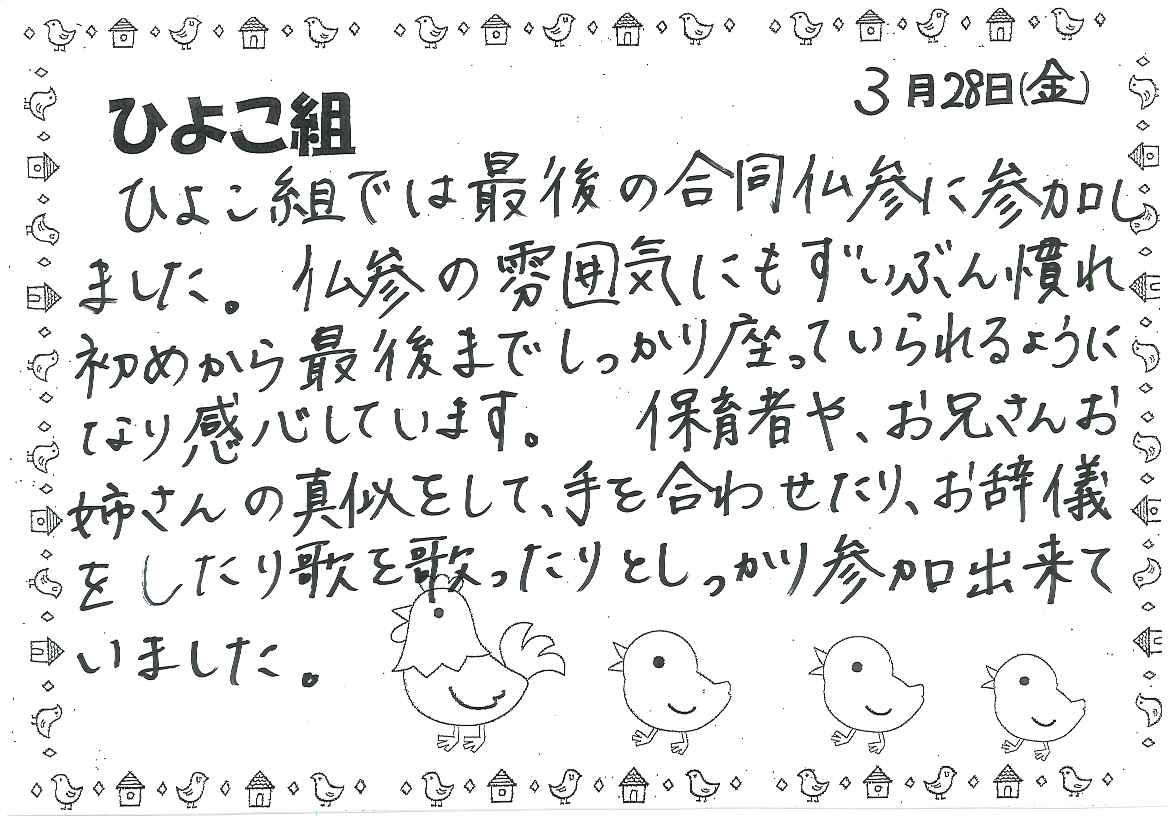 3月28日(金)
ひよこ組
ひよこ組では最後の合同仏参に参加し
ました。仏参の雰囲気にもずいぶん慣れ
初めから最後までしっかり座っていられるように
なり感心しています。 保育者や、お兄さんお
姉さんの真似をして、手を合わせたり、お辞儀
をしたり歌を歌ったりとしっかり参加出来て
いました。